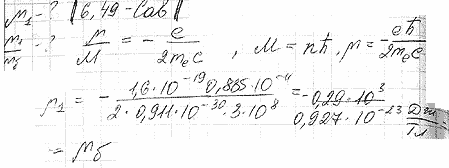 μ₁ - ? | 6,49 - Сав |
μ₁/μб - ? μ/M = - e/2mₑc , M = nħ, μ = - eħ/2mₑc
μ₁ = - 1,6·10⁻¹⁹ 0,865·10⁻¹¹ / 2·0,911·10⁻³⁰·3·10⁸ = -0,29·10³ 0,927·10⁻²³ Дж/Тл =
= μб